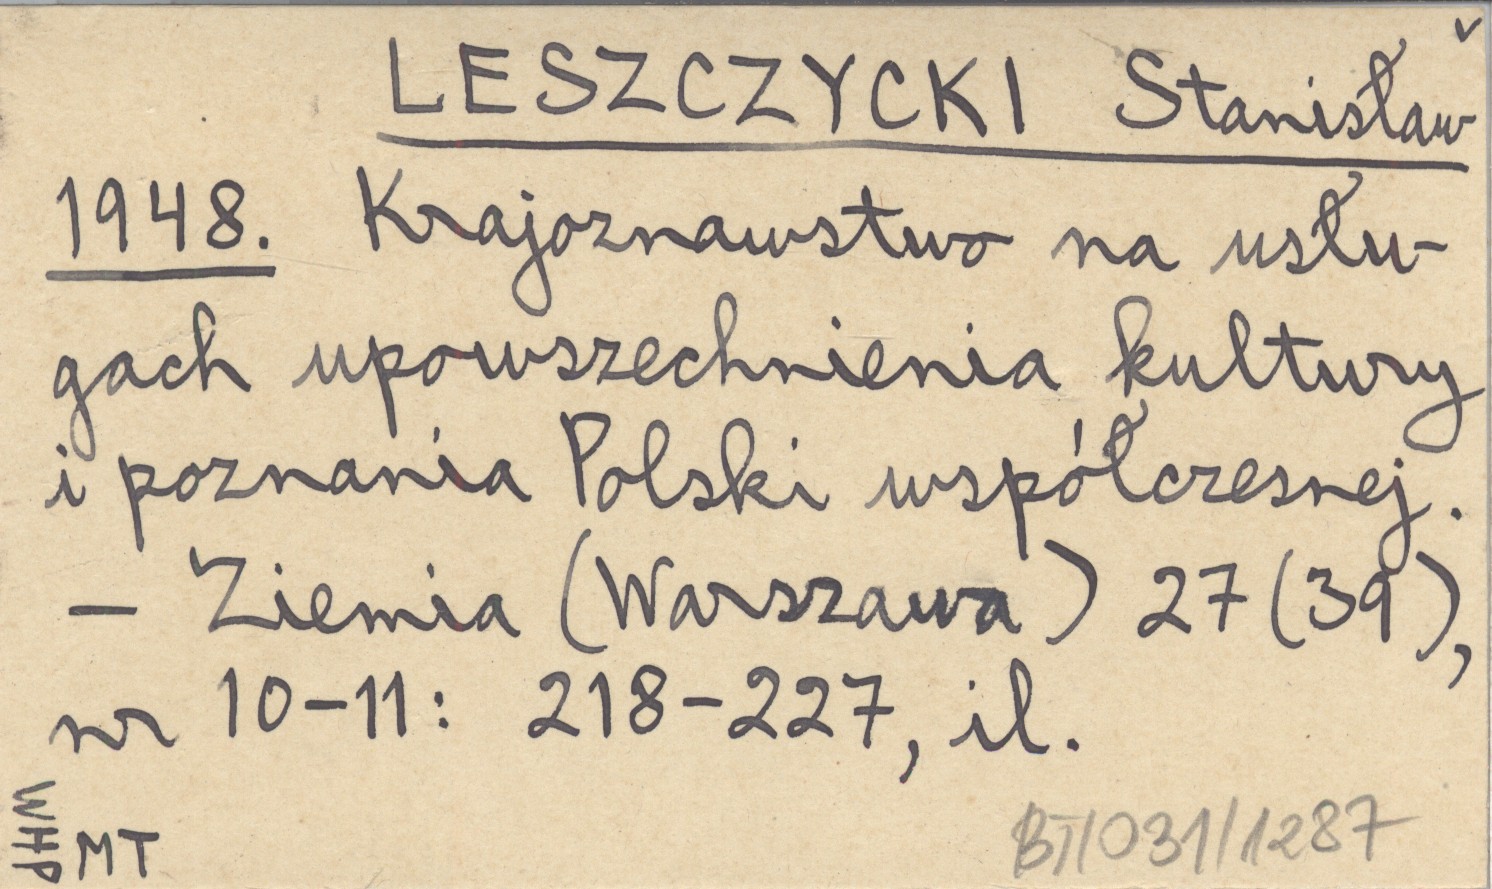 LESZCZYCKI Stanisław
1948. Krajoznawstwo na usłu-
gach upowszechnienia kultury
i poznania Polski współczesnej.
— Ziemia (Warszawa) 27(39),
nr 10-11: 218-227, il.
WHP MT
BT/031/1287